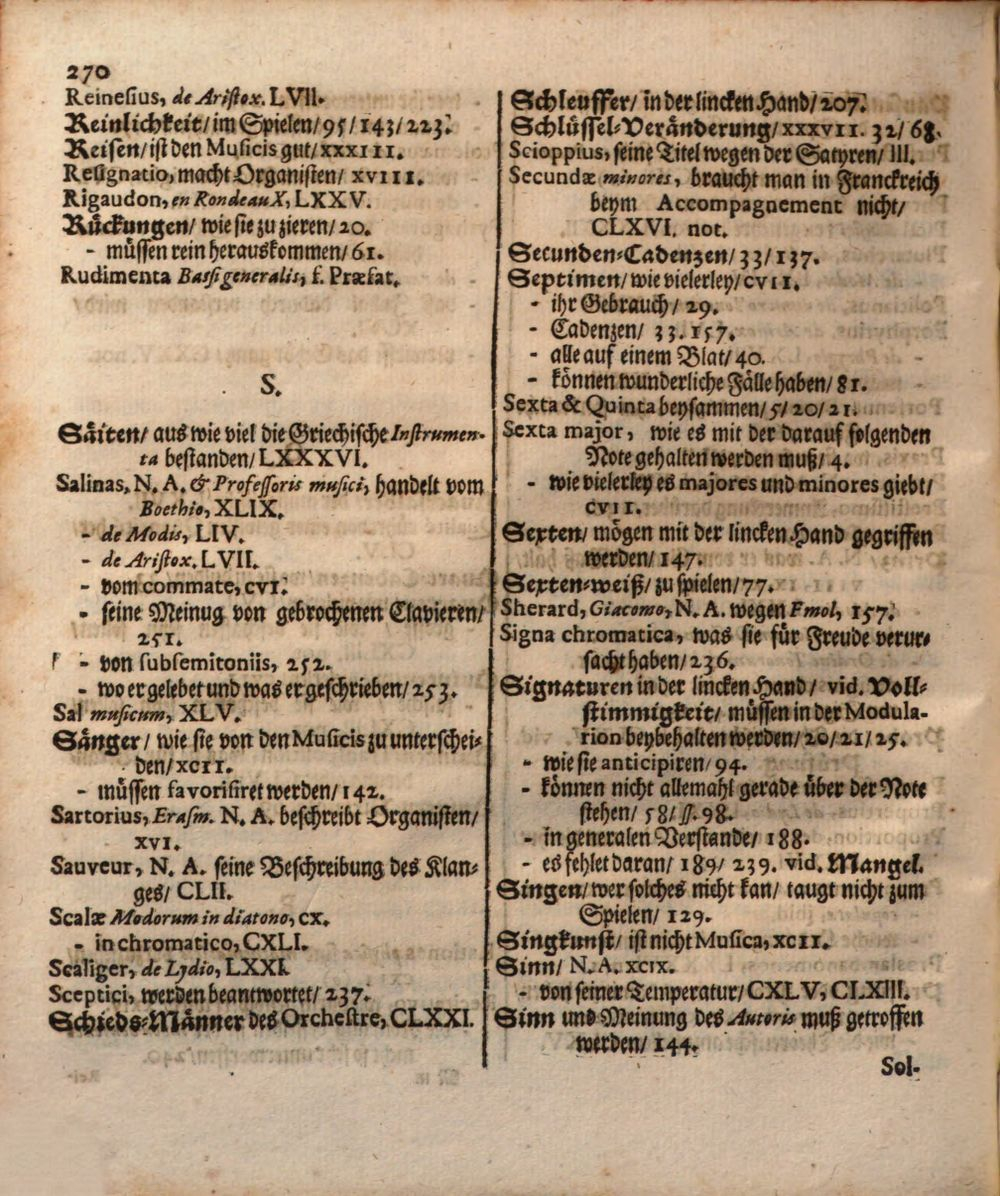 270
Reinesius, de Aristox. LVII.
Reinlichkeit/ im Spielen/ 95/ 143/ 223.
Reisen/ ist den Musicis gut/ xxxIII.
Resignatio, macht Organisten/ xvIII.
Rigaudon, en RondeauX, LXXV.
Rückungen/ wie sie zu zieren/ 20.
- müssen rein herauskommen/ 61.
Rudimenta Bassi generalis, s. Præfat.
S.
Säiten/ aus wie viel die Griechische Instrumen-
ta bestanden/ LXXXVI.
Salinas, N. A. & Professoris musici, handelt vom
Boethio, XLIX.
- de Modis, LIV.
- de Aristox. LVII.
- vom commate, cvI.
- seine Meinug von gebrochenen Clavieren/
251.
- von subsemitoniis, 252.
- wo er gelebet und was er geschrieben/ 253.
Sal musicum, XLV.
Sänger/ wie sie von den Musicis zu unterschei-
den/ xcII.
- müssen favorisiret werden/ 142.
Sartorius, Erasm. N. A. beschreibt Organisten/
xvI.
Sauveur, N. A. seine Beschreibung des Klan-
ges/ CLII.
Scalæ Modorum in diatono, cx.
- in chromatico, CXLI.
Scaliger, de Lydio, LXXI.
Sceptici, werden beantwortet/ 237.
Schieds-Männer des Orchestre, CLXXI.
Schleuffer/ in der lincken Hand/ 207.
Schlüssel-Veränderung/ xxxvII. 32/ 68.
Scioppius, seine Titel wegen der Satyren/ III.
Secundæ minores, braucht man in Franckreich
beym Accompagnement nicht/
CLXVI. not.
Secunden-Cadenzen/ 33/ 137.
Septimen/ wie vielerley/ cvII.
- ihr Gebrauch/ 29.
- Cadenzen/ 33. 157.
- alle auf einem Blat/ 40.
- können wunderliche Fälle haben/ 81.
Sexta & Quinta beysammen/ 5/ 20/ 21.
Sexta major, wie es mit der darauf folgenden
Note gehalten werden muß/ 4.
- wie vielerley es majores und minores giebt/
cvII.
Sexten/ mögen mit der lincken Hand gegriffen
werden/ 147.
Sexten-weiß/ zu spielen/ 77.
Sherard, Giacomo, N. A. wegen Fmol, 157.
Signa chromatica, was sie für Freude verur-
sacht haben/ 236.
Signaturen in der lincken Hand/ vid. Voll-
stimmigkeit/ müssen in der Modula-
tion beybehalten werden/ 20/ 21/ 25.
- wie sie anticipiren/ 94.
- können nicht allemahl gerade über der Note
stehen/ 58/ ss. 98.
- in generalen Verstande/ 188.
- es fehlet daran/ 189/ 239. vid. Mangel.
Singen/ wer solches nicht kan/ taugt nicht zum
Spielen/ 129.
Singkunst/ ist nicht Musica, xcII.
Sinn/ N. A. xcIx.
- von seiner Temperatur/ CXLV, CLXIII.
Sinn und Meinung des Autoris muß getroffen
werden/ 144.
Sol-